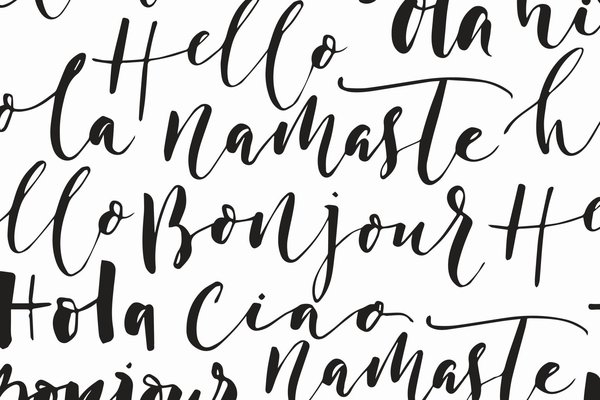 Hello Ola hi
ola namaste h
llo Bonjour He
Hola Ciao
Bonjour namaste